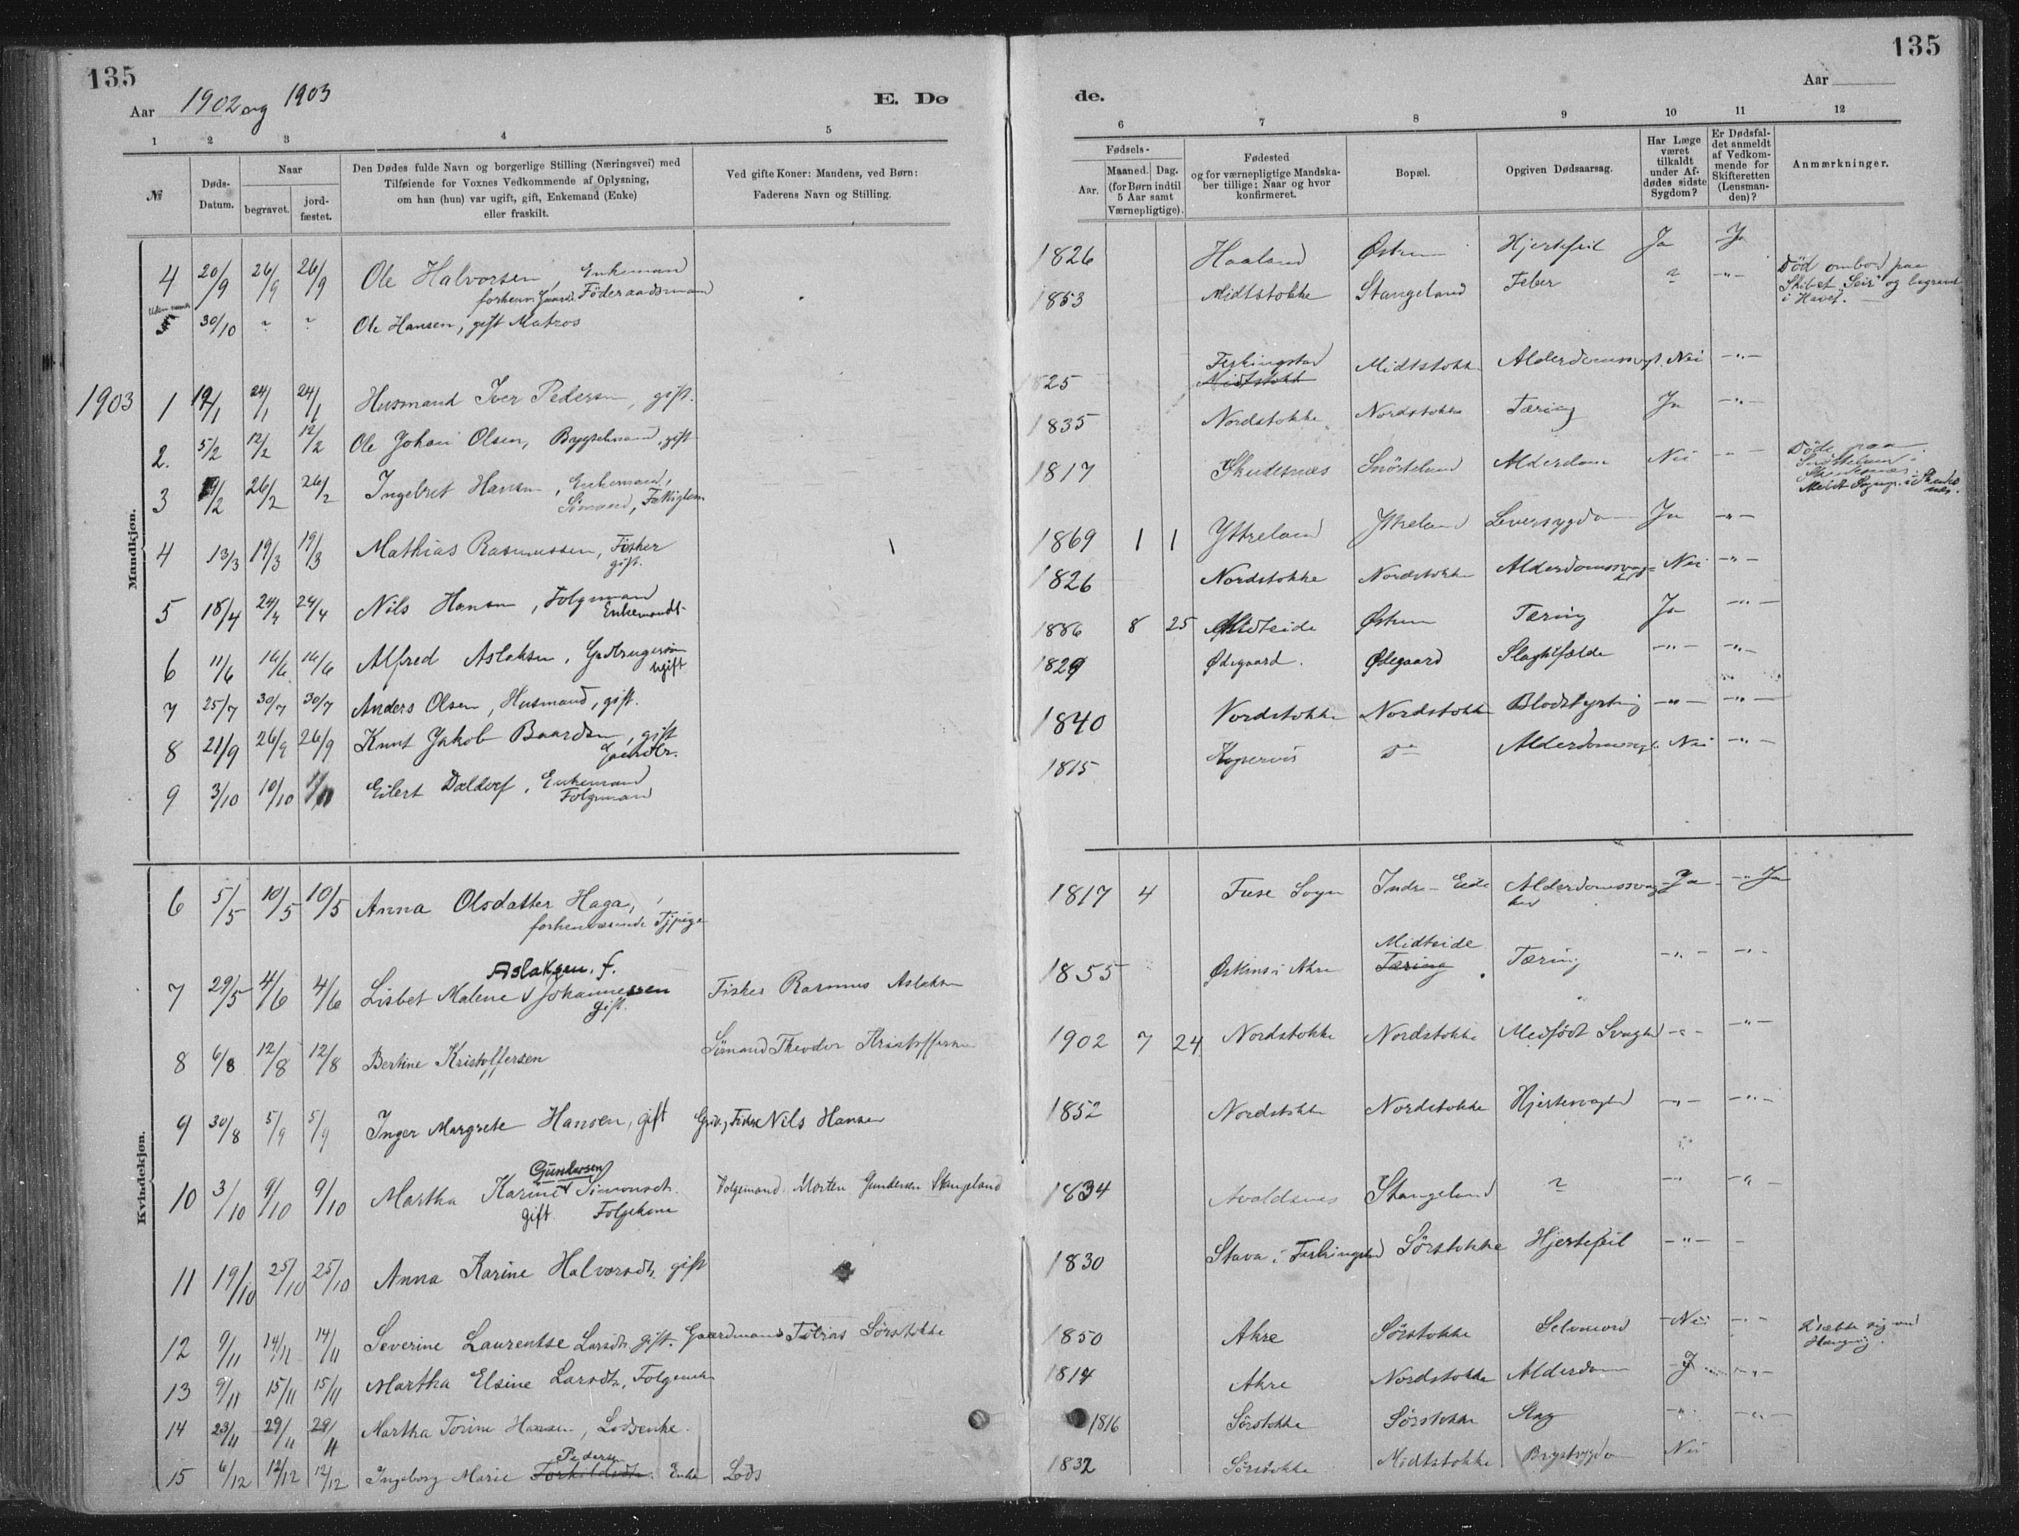 135
135
Aar 1902 og 1903
E. Dø
de.
Aar
1 2 3 4 5
6 7 8 9 10 11 12
№
Døds-Datum.
Naar
begravet.
jord-fæstet.
Den Dødes fulde Navn og borgerlige Stilling (Næringsvei) med
Tilføiende for Voxnes Vedkommende af Oplysning,
om han (hun) var ugift, gift, Enkemand (Enke)
eller fraskilt.
Ved gifte Koner: Mandens, ved Børn:
Faderens Navn og Stilling.
Fødsels-
Aar.
Maaned. Dag.
(for Børn indtil
5 Aar samt
Værnepligtige).
Fødested
og for værnepligtige Mandska-
ber tillige: Naar og hvor
konfirmeret.
Bopæl.
Opgiven Dødsaarsag.
Har Læge
været
tilkaldt
under Af-
dødes sidste
Sygdom?
Er Dødsfal-
det anmeldt
af Vedkom-
mende for
Skifteretten
(Lensman-
den)?
Anmærkninger.
Mandkjøn.
4 20/9 26/9 26/9 Ole Halvorsen, Enkemand
forhenv. Gaardb. Föderaadsmand
1826 Haaland Østrem Hjertefeil Ja Ja
5 30/10 Ole Hansen, gift Matros
1853 Midtstokke Stangeland Feber Død ombord paa
Skibet "Seir" og begravet
i Havet.
1903
1 24/1 24/1 Husmand Iver Pedersen, gift.
1825 Ferkingstad Midtstokke Midtstokke Alderdomssvagh. Nei
2. 5/2 12/2 12/2 Ole Johan Olsen, Bøygselmand, gift
1835 Nordstokke Nordstokke Tæring Ja
3 26/2 26/2 Ingebret Hansen, Enkemand,
Sømand, Fattiglem
1817 Skudesnes Snörteland Alderdom Nei Döde paa
4 13/3 19/3 19/3 Mathias Rasmussen, Fisker
gift.
1869 1 1 Yttreland Yttreland Leversygdom Ja
5 18/4 24/4 24/4 Nils Hansen, Folgmand
Enkemand
1826 Nordstokke Nordstokke Alderdomssvaghed Nei
6 11/6 16/6 16/6 Alfred Aslaksen, Gaardbrugersøn
ugift
1886 8 25 Midteide Østrem Tæring Ja
7 25/7 30/7 30/7 Anders Olsen, Husmand, gift.
1829 Ødegaard. Ødegaard Slagtilfælde
8 21/9 26/9 26/9 Knut Jakob Baardsen, gift
Gaardbr.
1840 Nordstokke Nordstokke Blodstyrtning
9 3/10 10/10 Eilert Dældorf, Enkemand
Folgemand
1815 Kopervik Do Alderdomssvagh. Nei
Kvindekjøn.
6 5/5 10/5 10/5 Anna Olsdatter Haga,
forhenværende Tjpige
1817 4 Fuse Sogn Indre-Eide Alderdomssvaghed Ja Ja
7 29/5 4/6 4/6 Lisbet Malene Aslaksen, f. Johannessen
gift.
Fisker Rasmus Aslaksen
1855 Østhus i Akre Midteide Tæring Tæring
8 6/8 12/8 12/8 Bertine Kristoffersen
Sømand Theodor Kristoffersen
1902 7 24 Nordstokke Nordstokke Medfödt Svaghed
9 30/8 5/9 5/9 Inger Margrete Hansen, gift
Fisker Nils Hansen
1852 Nordstokke Nordstokke Hjertesvaghed
10 3/10 9/10 9/10 Martha Karine Gundersen Simonsdt.
gift. Folgekone
Folgemand Morten Gundersen Stangeland
1834 Avaldsnes Stangeland
11 19/10 25/10 25/10 Anna Karine Halvorsdt. gift
1830 Stava i Ferkingstad Sørstokke Hjertefeil
12 9/11 14/11 14/11 Severine Laurentse Larsdt. gift.
Gaardmand Tobias Sørstokke
1850 Akre Sørstokke Selvmord Nei Dræbte sig ved
Hængning.
13 9/11 15/11 15/11 Martha Elsine Larsdt.
1814 Akre Nordstokke Alderdom J
14 23/11 29/11 29/11 Martha Torine Hansen, Lodsenke.
1816 Sørstokke Sørstokke Slag
15 6/12 12/12 12/12 Ingeborg Marie Pedersen Torkildsdt. Enke
Lods
1832 Sørstokke Midtstokke Brystsygdom Nei